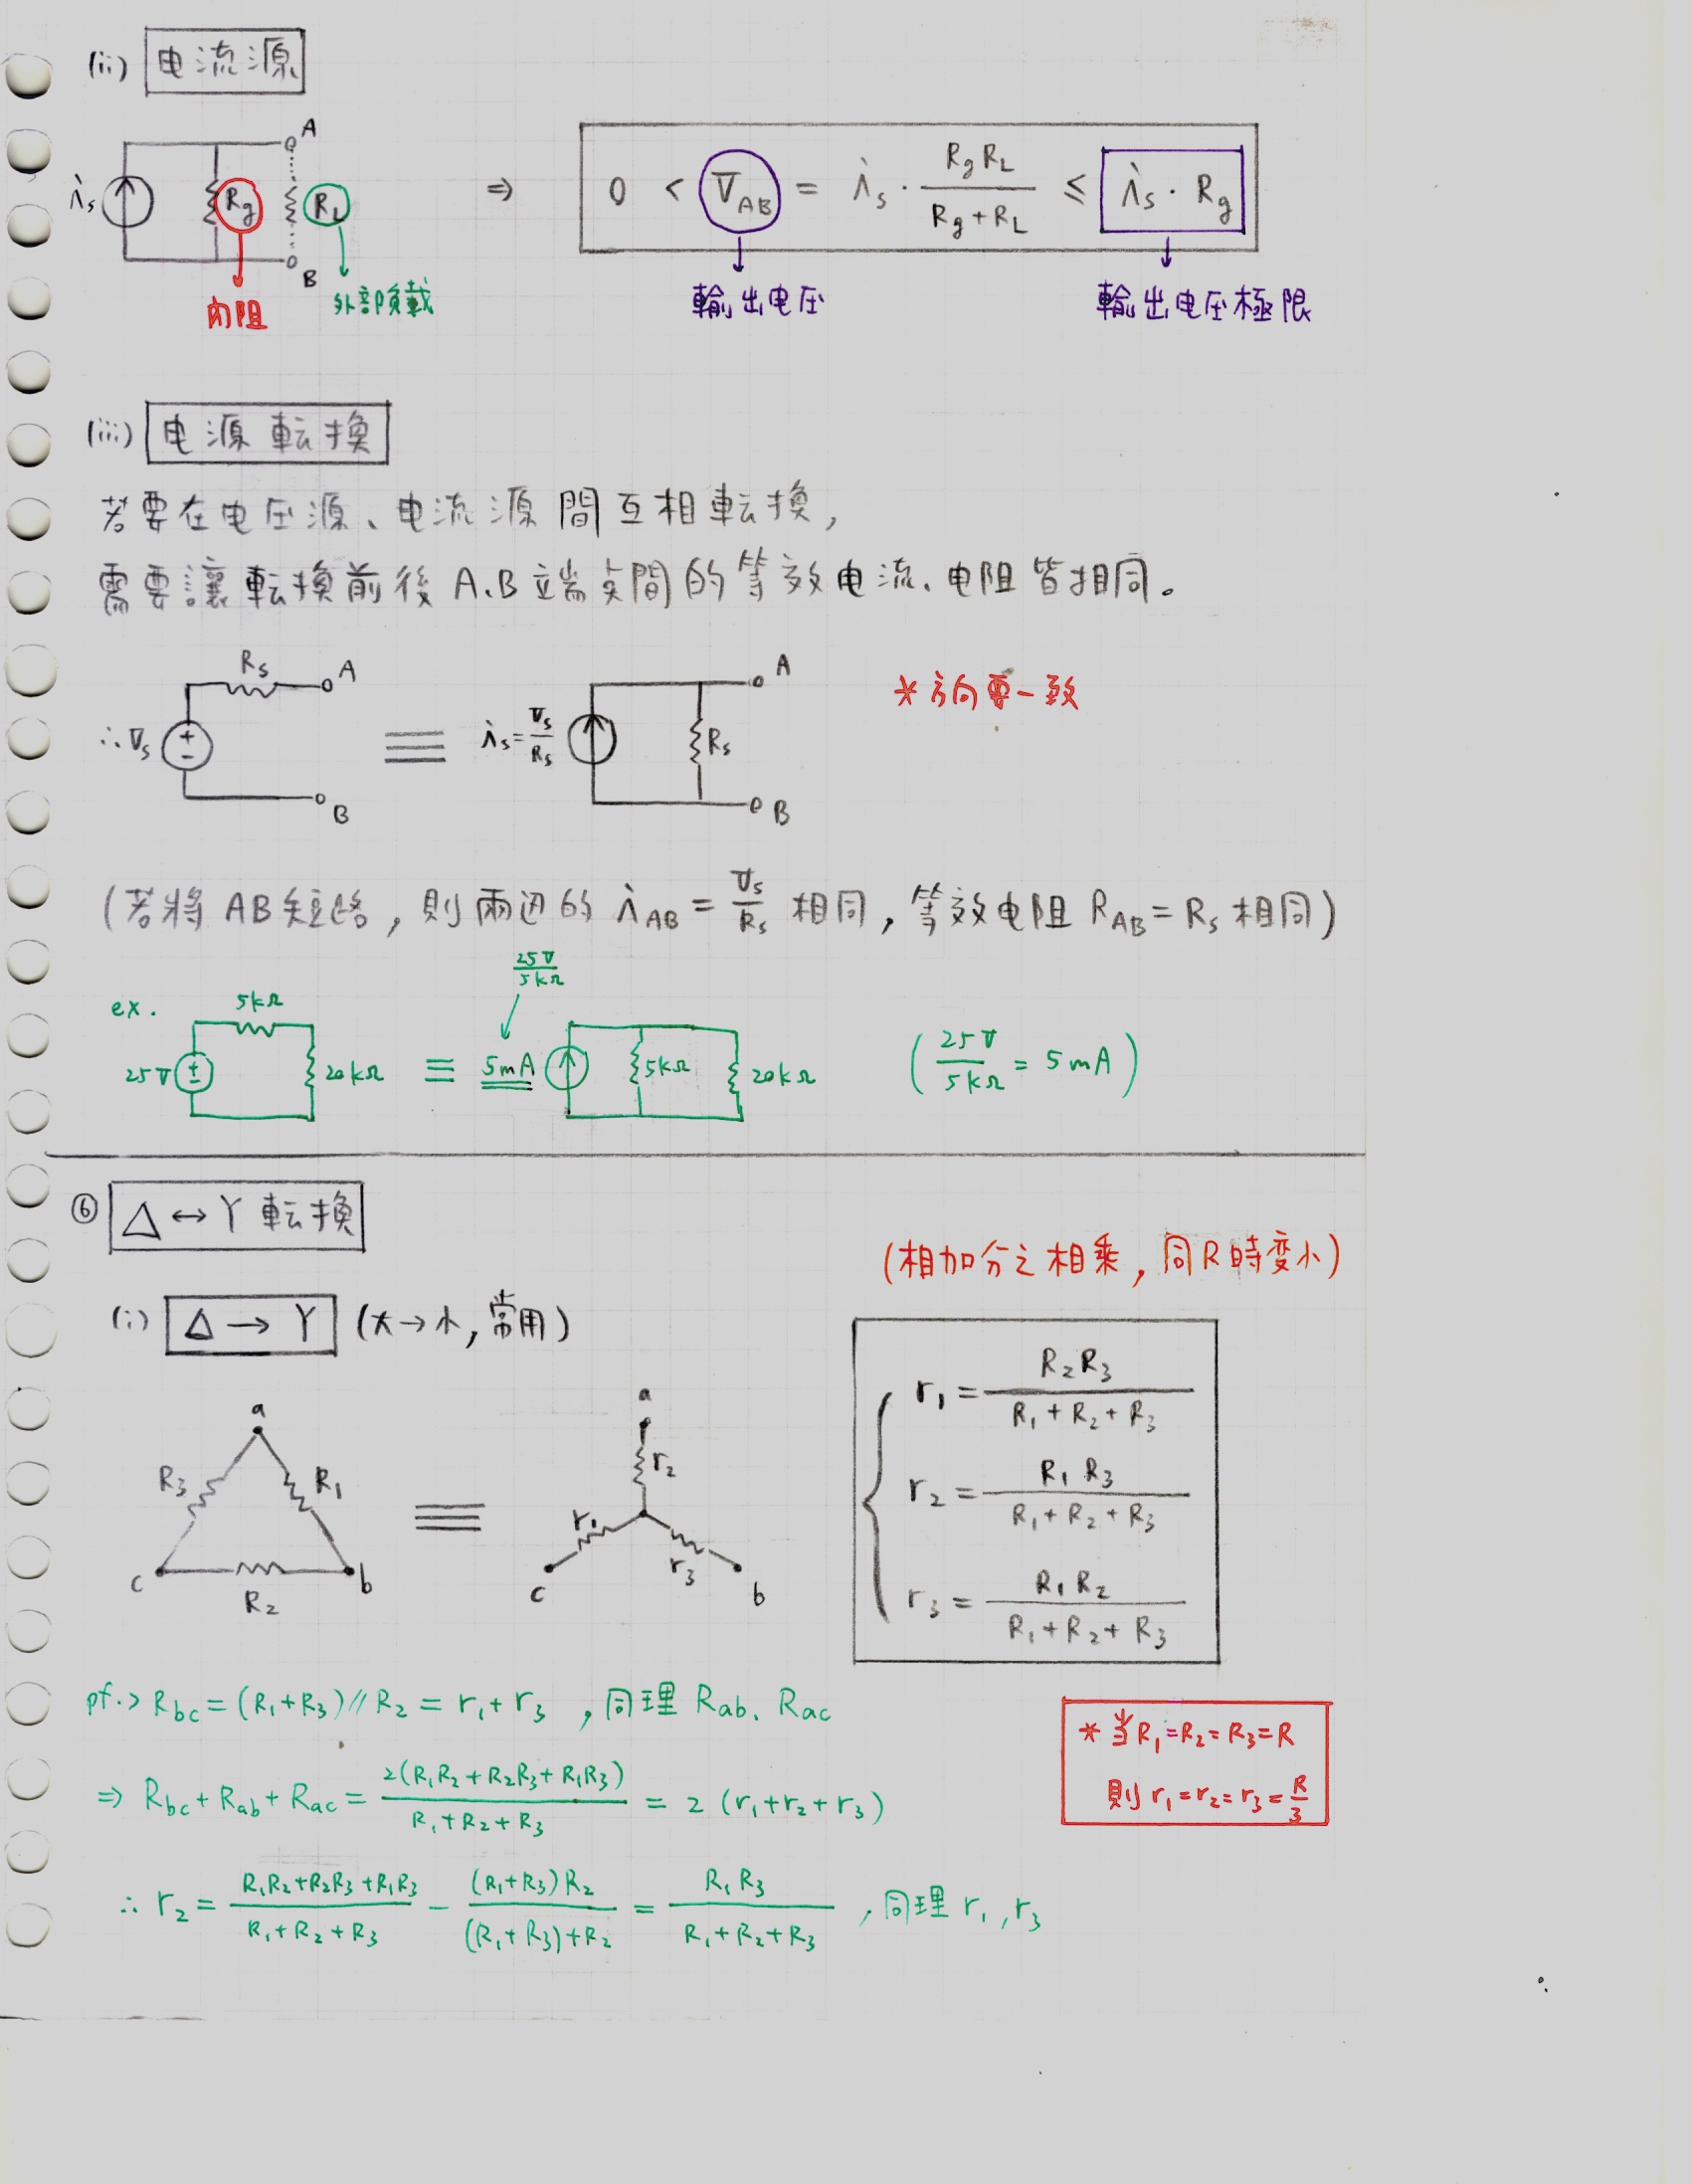 (ii) 电流源
A
i_s R_g R_L ⇒ 0 < V_AB = i_s · R_g R_L / (R_g + R_L) ≤ i_s · R_g
B
内阻 外部負載 輸出电圧 輸出电圧極限
(iii) 电源転換
若要在电圧源、电流源間互相転換,
需要讓転換前後A.B端点間的等效电流、电阻皆相同。
R_s A A
*方向要一致
∴ V_s + - ≡ i_s = V_s/R_s R_s
B B
(若将AB短路, 則兩辺的 i_AB = V_s/R_s 相同, 等效电阻 R_AB = R_s 相同)
25V/5kΩ
ex. 5kΩ
25V ± 20kΩ ≡ 5mA 5kΩ 20kΩ (25V/5kΩ = 5mA)
⑥ Δ ↔ Y 転換
(相加分之相乗, 同R時変小)
(i) Δ → Y (大→小, 常用)
a a
R_3 R_1 ≡ r_2
r_1 r_3
c R_2 b c b
r_1 = R_2 R_3 / (R_1 + R_2 + R_3)
r_2 = R_1 R_3 / (R_1 + R_2 + R_3)
r_3 = R_1 R_2 / (R_1 + R_2 + R_3)
pf.> R_bc = (R_1 + R_3) // R_2 = r_1 + r_3 , 同理 R_ab、R_ac
⇒ R_bc + R_ab + R_ac = 2(R_1R_2 + R_2R_3 + R_1R_3) / (R_1 + R_2 + R_3) = 2 (r_1 + r_2 + r_3)
* 当R_1 = R_2 = R_3 = R
則 r_1 = r_2 = r_3 = R/3
∴ r_2 = (R_1R_2 + R_2R_3 + R_1R_3) / (R_1 + R_2 + R_3) - (R_1 + R_3)R_2 / ((R_1 + R_3) + R_2) = R_1 R_3 / (R_1 + R_2 + R_3) , 同理 r_1, r_3